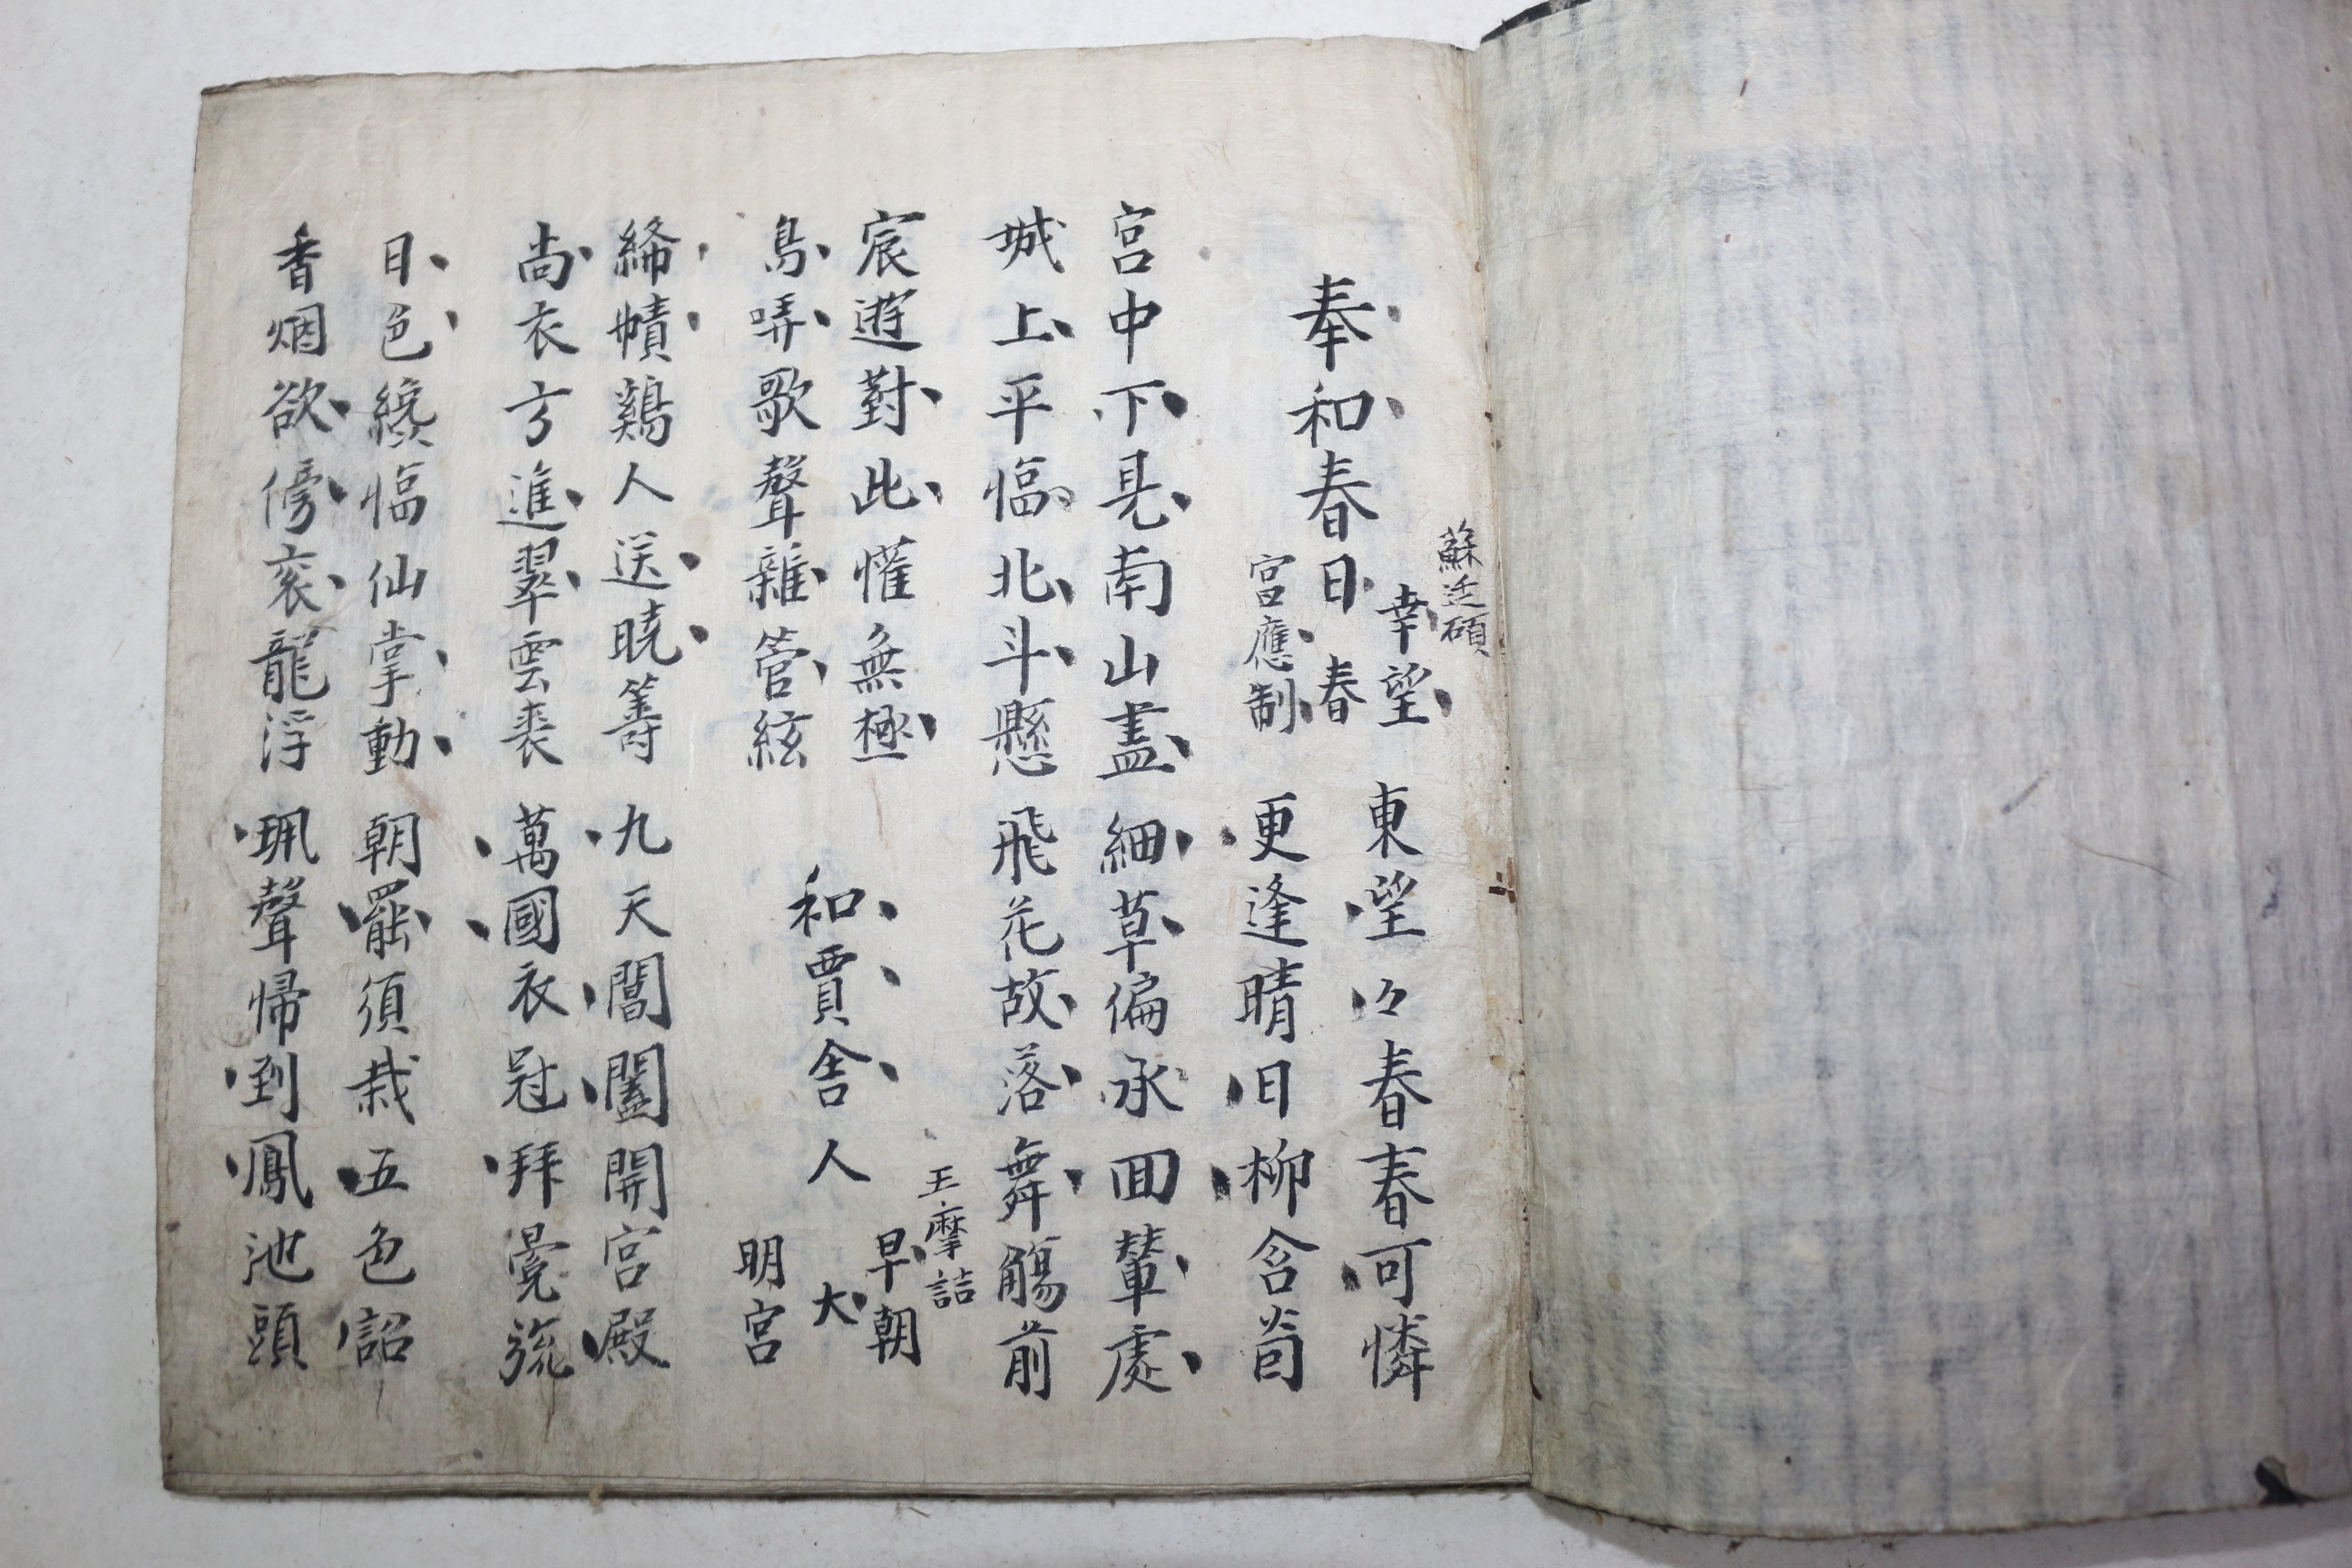 蘇廷碩
奉和春日幸望春宮應制
東望々春春可憐
更逢晴日柳含煙
宮中下見南山盡
城上平臨北斗懸
細草偏承回輦處
飛花故落舞觴前
宸遊對此懽無極
鳥哢歌聲雜管絃
王摩詰
和賈舍人早朝大明宮
絳幘鷄人送曉籌
尚衣方進翠雲裘
九天閶闔開宮殿
萬國衣冠拜冕旒
日色纔臨仙掌動
香烟欲傍衮龍浮
朝罷須裁五色詔
珮聲歸到鳳池頭